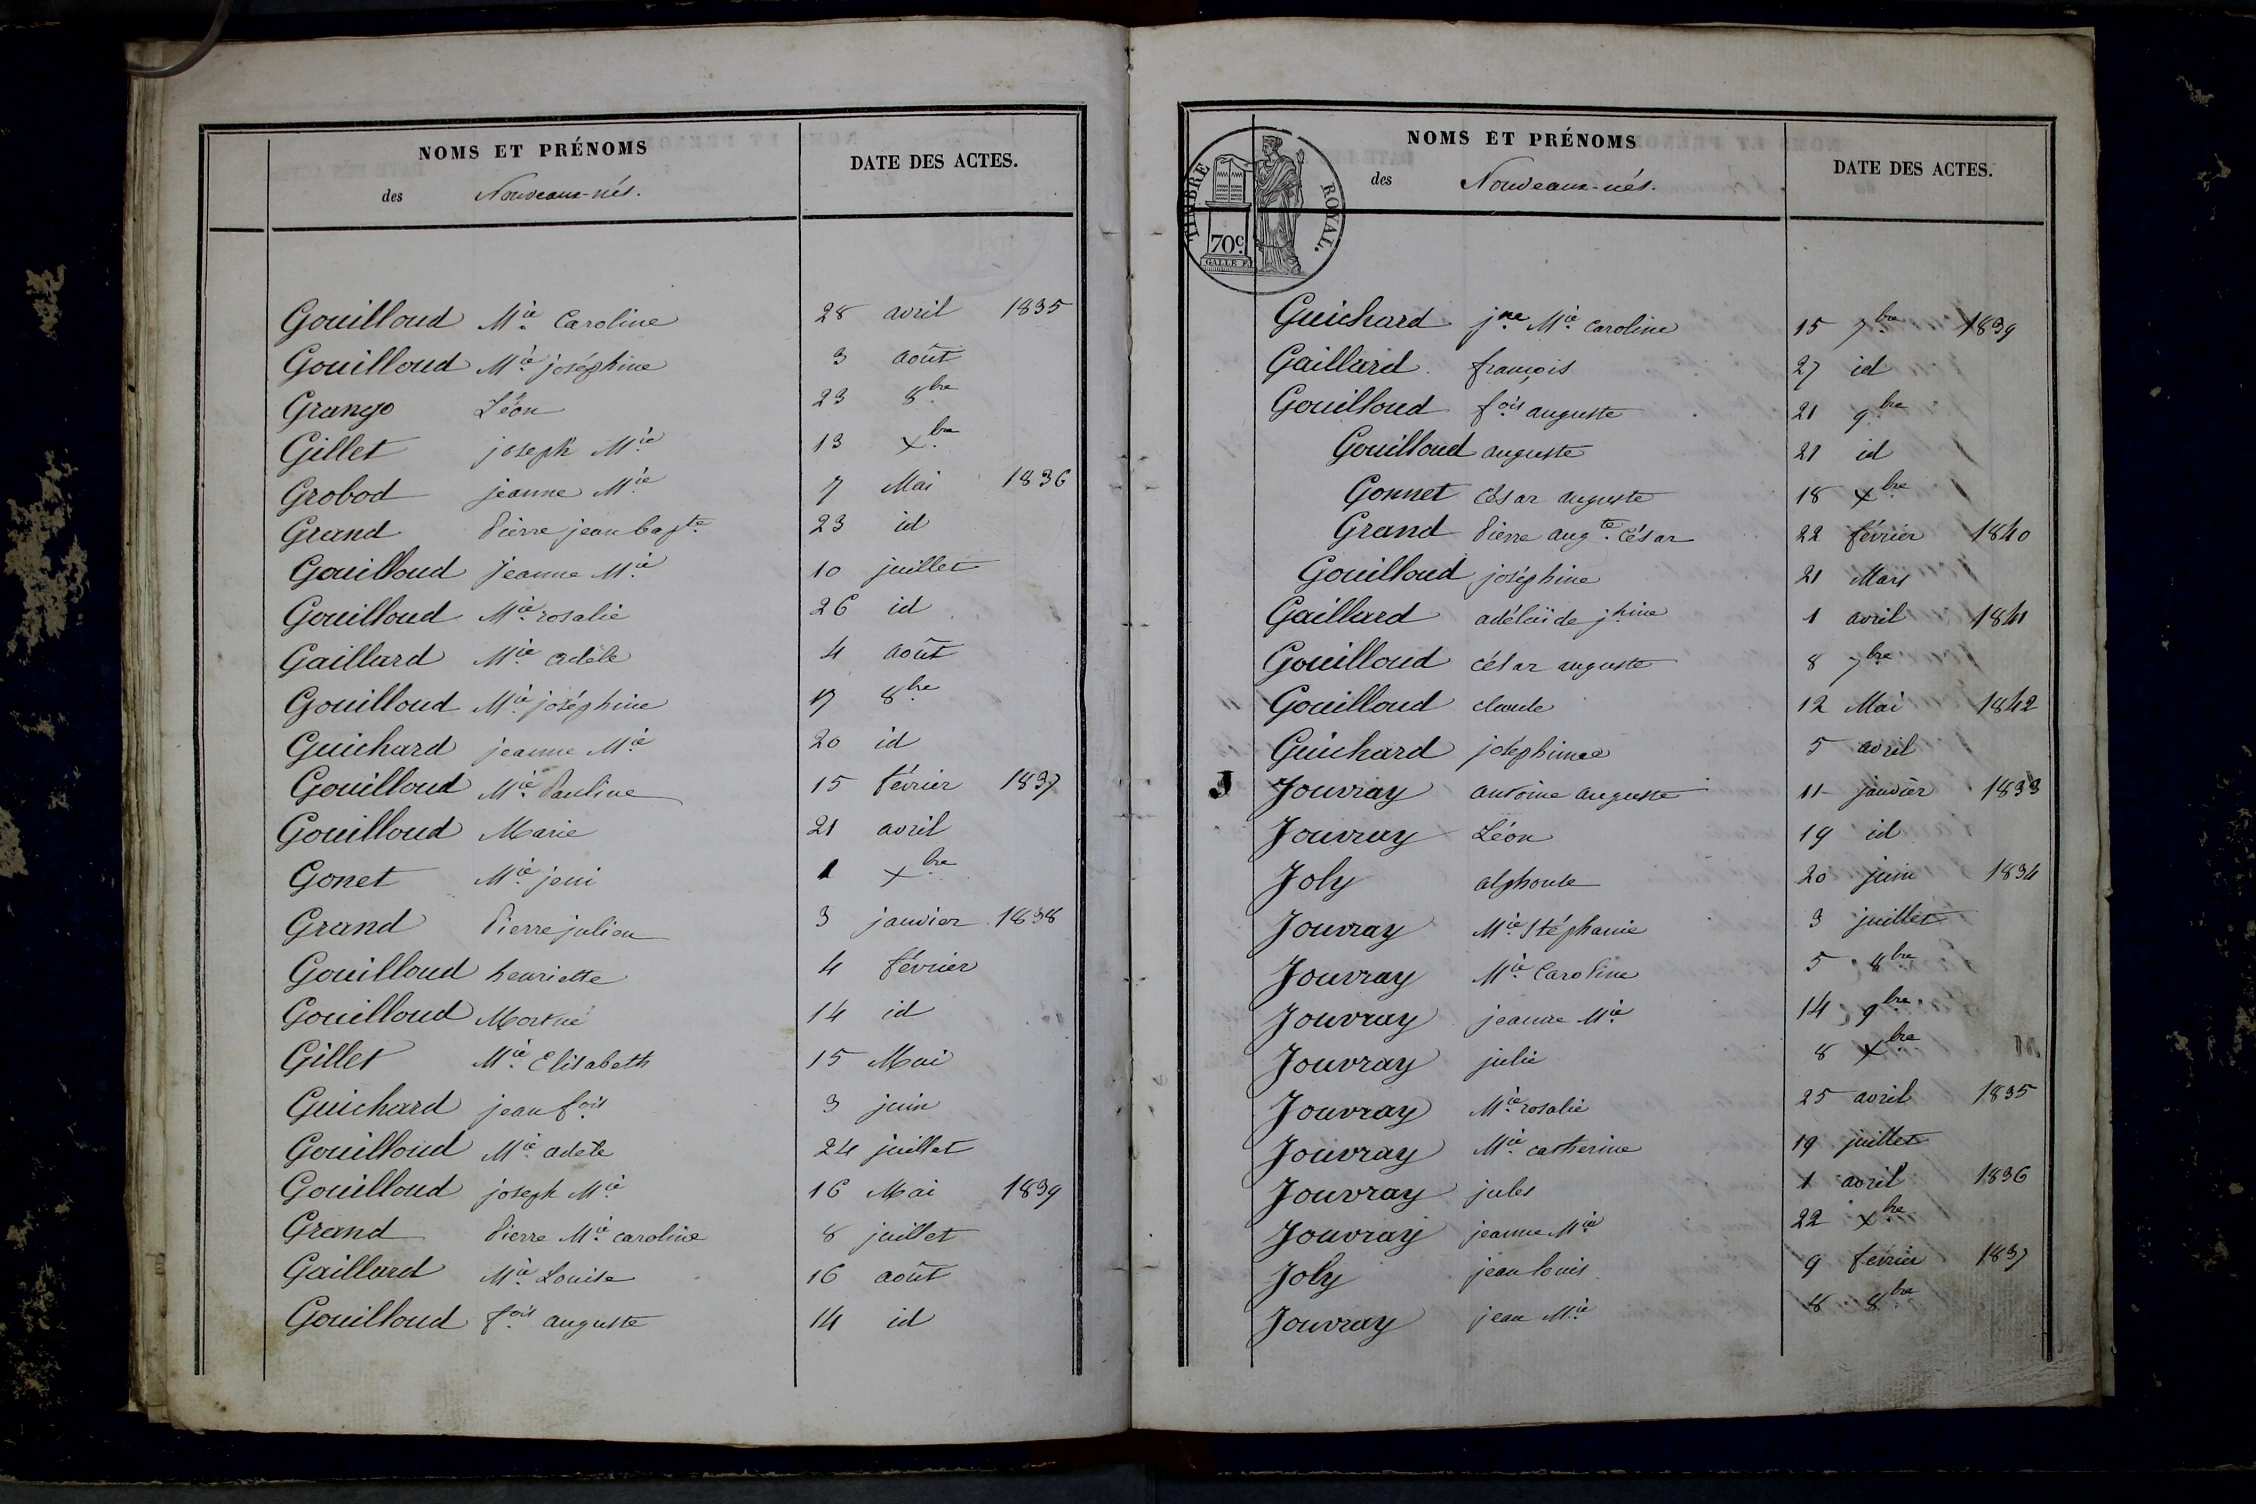 NOMS ET PRÉNOMS
DATE DES ACTES.
des Nouveaux-nés.
Gouilloud M.ie Caroline 28 avril 1835
Gouilloud M.ie joséphine 3 août
Grange Léon 23 8.bre
Gillet joseph M.ie 13 x.bre
Grobod jeanne M.ie 7 Mai 1836
Grand Pierre jean bap.te 23 id
Gouilloud Jeanne M.ie 10 juillet
Gouilloud M.ie rosalie 26 id
Gaillard M.ie adèle 4 août
Gouilloud M.ie joséphine 17 8.bre
Guichard jeanne M.ie 20 id
Gouilloud M.ie Pauline 15 février 1837
Gouilloud Marie 21 avril
Gonet M.ie jeni 1 x.bre
Grand Pierre julien 3 janvier 1838
Gouilloud henriette 4 février
Gouilloud Mort né 14 id
Gillet M.ie Elisabeth 15 Mai
Guichard jean f.ois 3 juin
Gouilloud M.ie adèle 24 juillet
Gouilloud joseph M.ie 16 Mai 1839
Grand Pierre M.ie caroline 8 juillet
Gaillard M.ie Louise 16 août
Gouilloud f.ois auguste 14 id
NOMS ET PRÉNOMS
DATE DES ACTES.
des Nouveaux-nés.
TIMBRE ROYAL.
70c.
Guichard j.ne M.ie caroline 15 7.bre 1839
Gaillard françois 27 id
Gouilloud f.ois auguste 21 9.bre
Gouilloud auguste 21 id
Gonnet César auguste 18 x.bre
Grand Pierre aug.te César 22 février 1840
Gouilloud joséphine 21 Mars
Gaillard adélaïde j.hine 1 avril 1841
Gouilloud césar auguste 8 7.bre
Gouilloud claude 12 Mai 1842
Guichard joséphince 5 avril
J Jouvray antoine auguste 11 janvier 1833
Jouvray Léon 19 id
Joly alphonse 20 juin 1834
Jouvray M.ie Stéphanie 3 juillet
Jouvray M.ie Caroline 5 8.bre
Jouvray jeanne M.ie 14 9.bre
Jouvray julie 8 x.bre
Jouvray M.ie rosalie 25 avril 1835
Jouvray M.ie catherine 19 juillet
Jouvray jules 1 avril 1836
Jouvray jeanne M.ie 22 x.bre
Joly jean louis 9 février 1837
Jouvray jean M.ie 8 8.bre